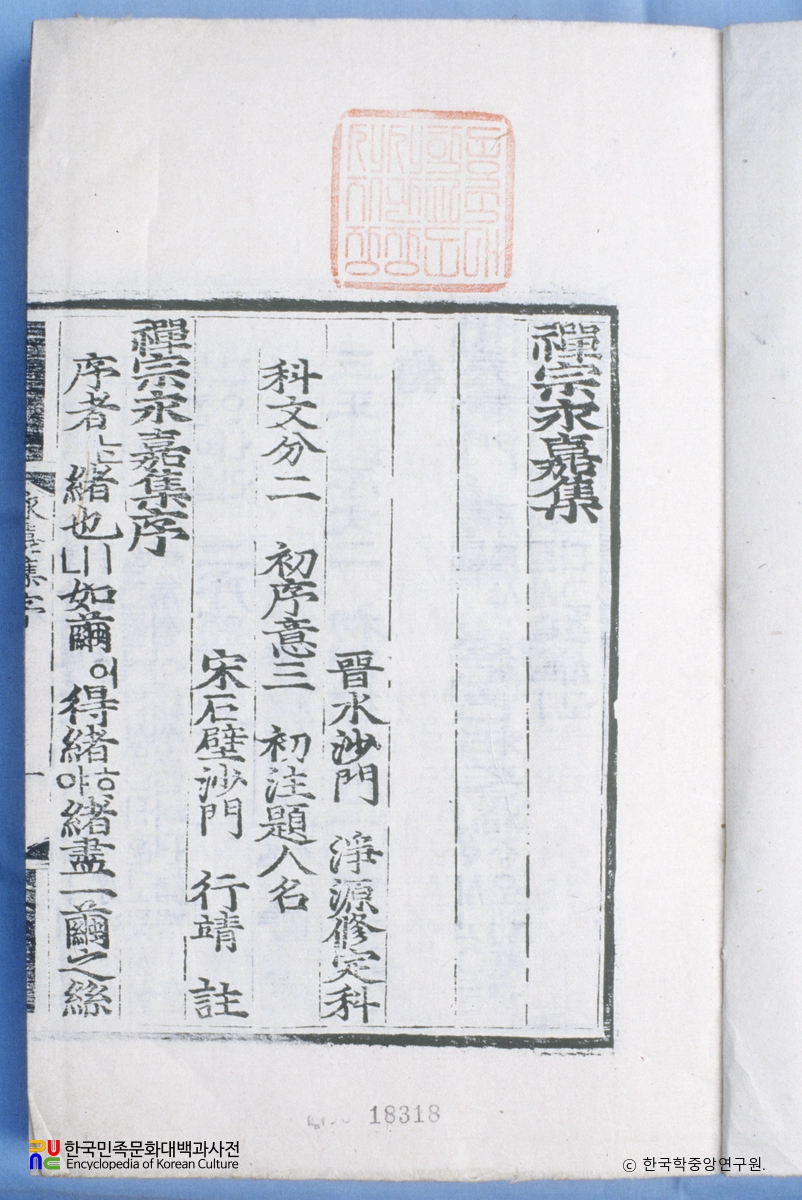 禪宗永嘉集
晉水沙門 淨源修定科
科文分二 初序意三 初注題人名
宋石壁沙門 行靖 註
禪宗永嘉集序
序者ᄂᆞᆫ緖也ㅣ니如繭이得緖ᄒᆞ야緖盡一繭之絲
永嘉集序
一
18318
한국민족문화대백과사전
Encyclopedia of Korean Culture
© 한국학중앙연구원.